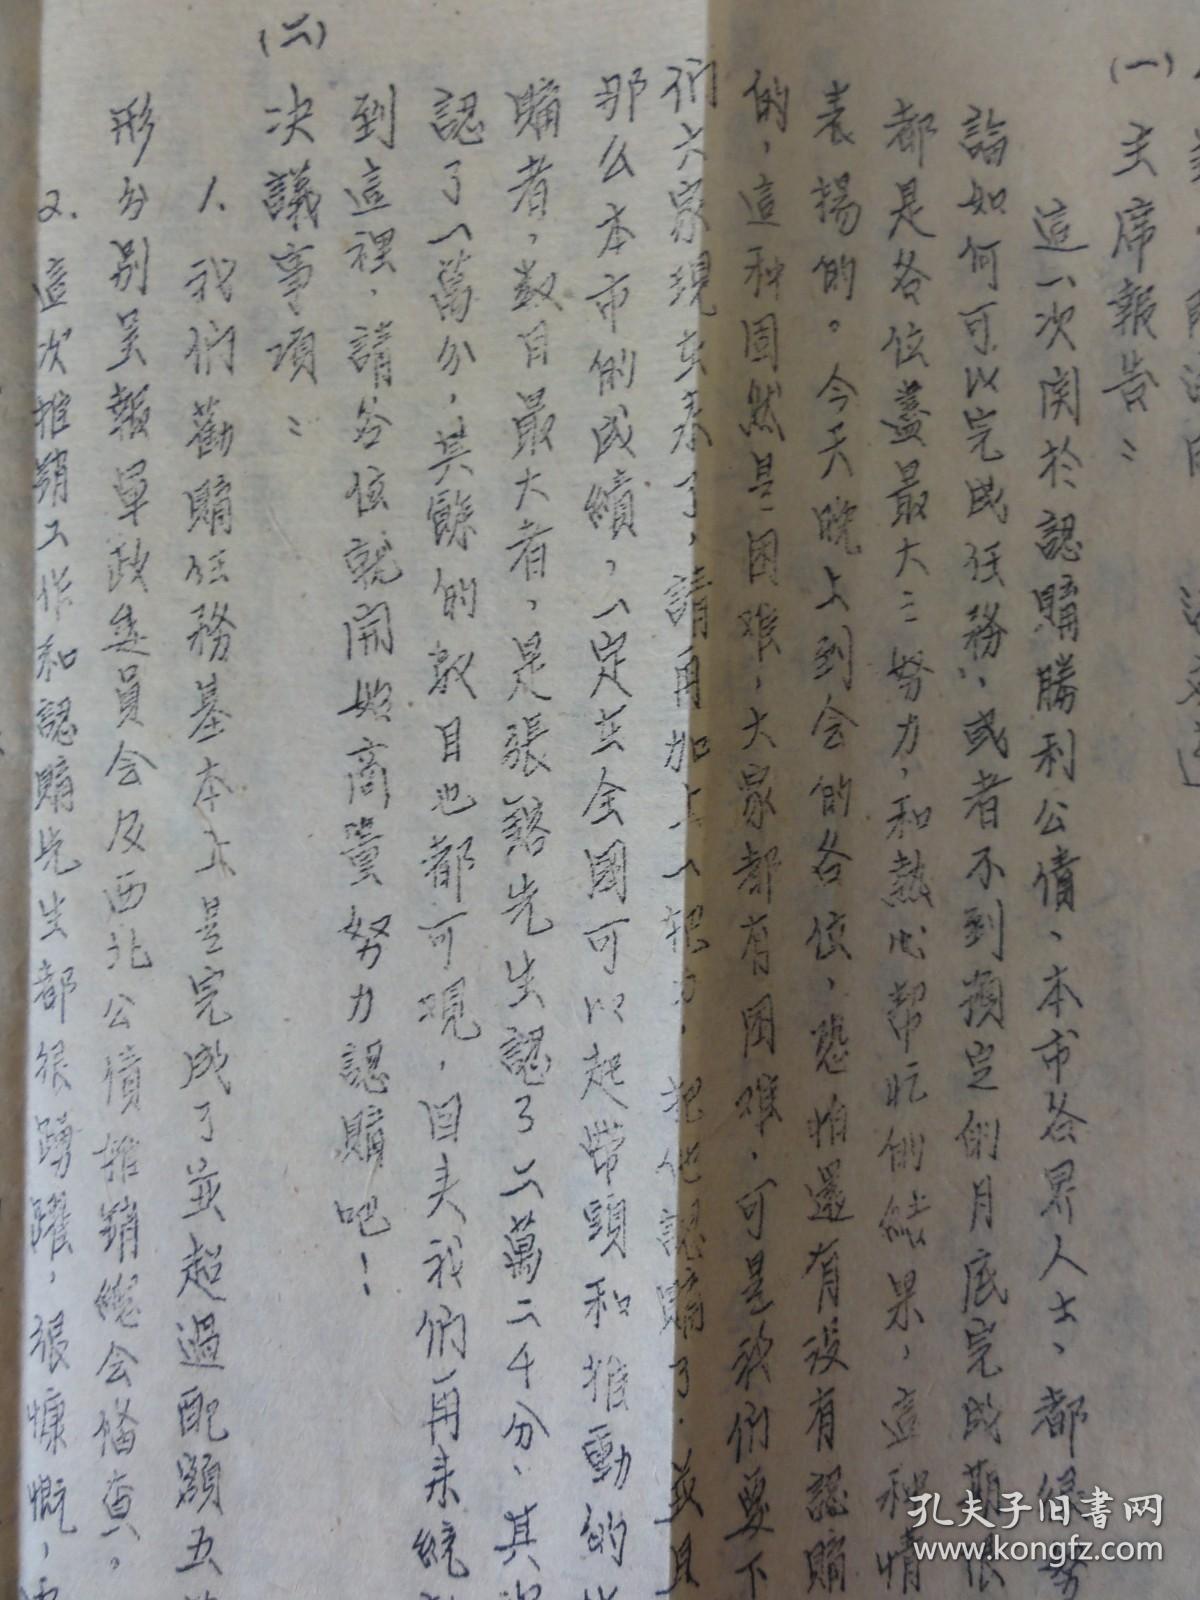 (一)主席報告:
這一次関於認購勝利公債、本市各界人士、都很努
論如何可以完成任務、或者不到預定的月底完成期限
都是各位蓋最大之努力，和熱心帮忙的結果，這种情
表揚的。今天晚上到会的各位，恐怕還有没有認購
的，這种固然是困难，大家都有困难，可是我們要下
們六家現在来了，請再加上一把力，把他認購了，並且
那么本市的成績，一定在全國可以起帶頭和推動的
購者，数目最大者，是張 先生認了二萬二千分、其
認了一萬分，其餘的数目也都可观，回头我們再来統
到這裡，請各位就開始商量努力認購吧！
(二)決議事項:
1. 我們勸購任務基本上是完成了並超過配額五
形分别呈報軍政委員会及西北公債推銷總会備查，
2. 這次推銷工作和認購先生都很踴躍，很慷慨，
孔夫子旧書网
www.kongfz.com